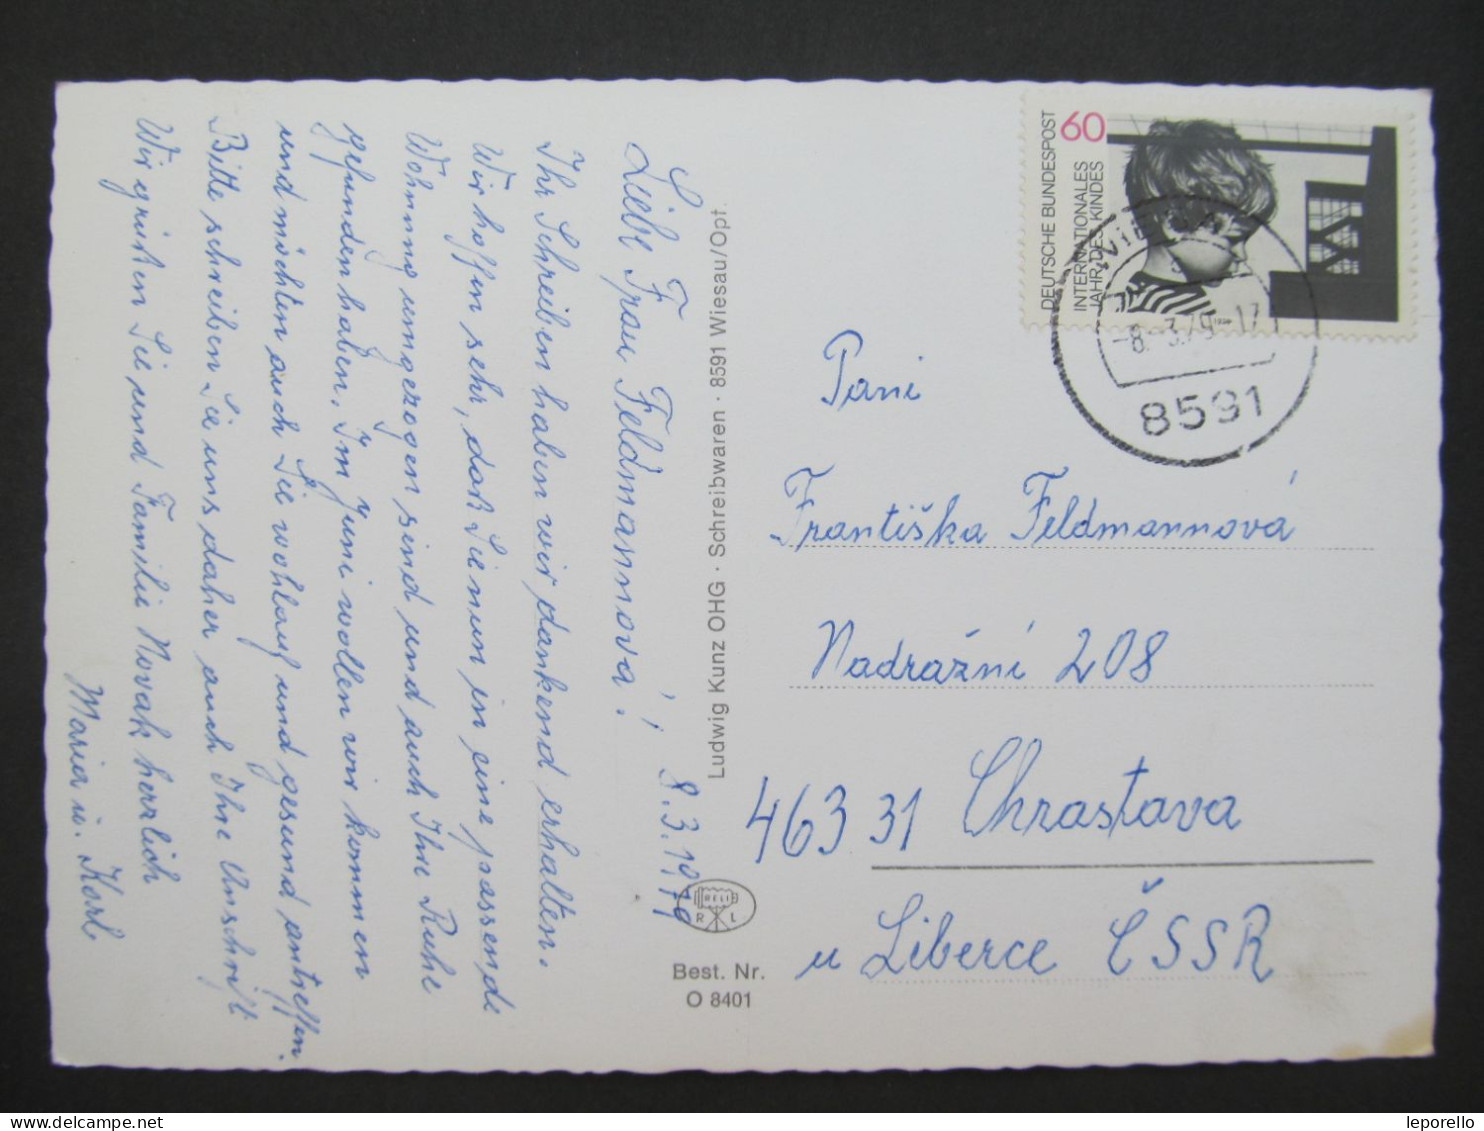 8.3.1979
Liebe Frau Feldmannová!
Ihr Schreiben haben wir dankend erhalten.
Wir hoffen sehr, daß Sie nun in eine passende
Wohnung umgezogen sind und auch Ihre Ruhe
gefunden haben. Im Juni wollen wir kommen
und möchten auch Sie wohlauf und gesund antreffen.
Bitte schreiben Sie uns daher auch Ihre Anschrift
Wir grüßen Sie und Familie Novak herzlich
Maria u. Karl
Ludwig Kunz OHG · Schreibwaren · 8591 Wiesau/Opf.
RELI
R L
Best. Nr.
O 8401
60
DEUTSCHE BUNDESPOST
INTERNATIONALES
JAHR DES KINDES
-8.-3.79-17
8591
Pani
Františka Feldmannová
Nadražní 208
46331 Chrastava
u Liberce ČSSR
leporello